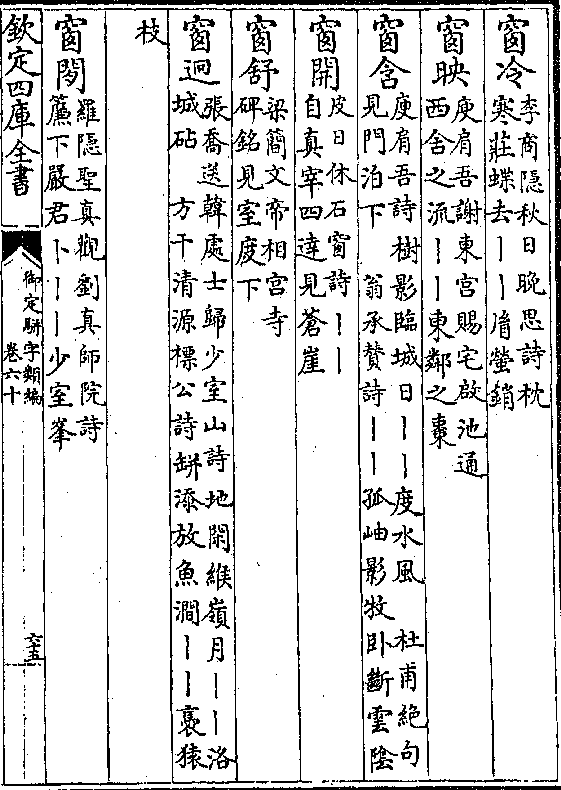 窗冷
李商隱秋日晚思詩枕
寒莊蝶去丨丨胤螢銷
窗映
庾肩吾謝東宮賜宅啟池通
西舍之流丨丨東鄰之棗
窗含
庾肩吾詩樹影臨城日丨丨度水風 杜甫絶句
見門泊下 翁承贊詩丨丨孤岫影牧卧斷雲陰
窗開
皮日休石窗詩丨丨
自真宰四達見蒼崖
窗舒
梁簡文帝相宮寺
碑銘見室度下
窗迥
張喬送韓處士歸少室山詩地閑緱嶺月丨丨洛
城砧 方干清源標公詩缾添放魚澗丨丨裛猿
枝
窗閒
羅隱聖真觀劉真師院詩
簾下嚴君卜丨丨少室峯
欽定四庫全書
御定駢字類編
卷六十
六十五